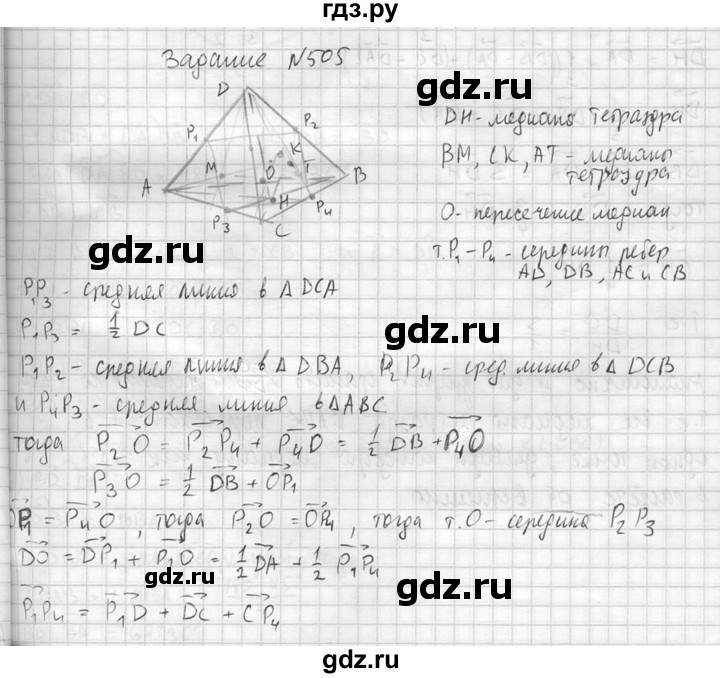 гдз.ру
Задание N505
D
P₁
P₂
K
M
O
T
A
B
H
P₃
C
P₄
DH - медиана тетраэдра
BM, CK, AT - медианы
тетраэдра
O - пересечение медиан
т. P₁ - P₄ - середины ребер
AD, DB, AC и CB
gdz.ru
P₁P₃ - средняя линия в Δ DCA
P₁P₃ = 1/2 DC
gdz.ru
P₁P₂ - средняя линия в Δ DBA, P₂P₄ - сред. линия в Δ DCB
и P₄P₃ - средняя линия в ΔABC
тогда P₂O = P₂P₄ + P₄O = 1/2 DB + P₄O
P₃O = 1/2 DB + OP₁
gdz.ru
OP₁ = P₄O, тогда P₂O = OP₄, тогда т. O - середина P₂P₃
DO = DP₁ + P₁O = 1/2 DA + 1/2 P₁P₄
gdz.ru
P₁P₄ = P₁D + DC + CP₄
gdz.ru
gdz.ru